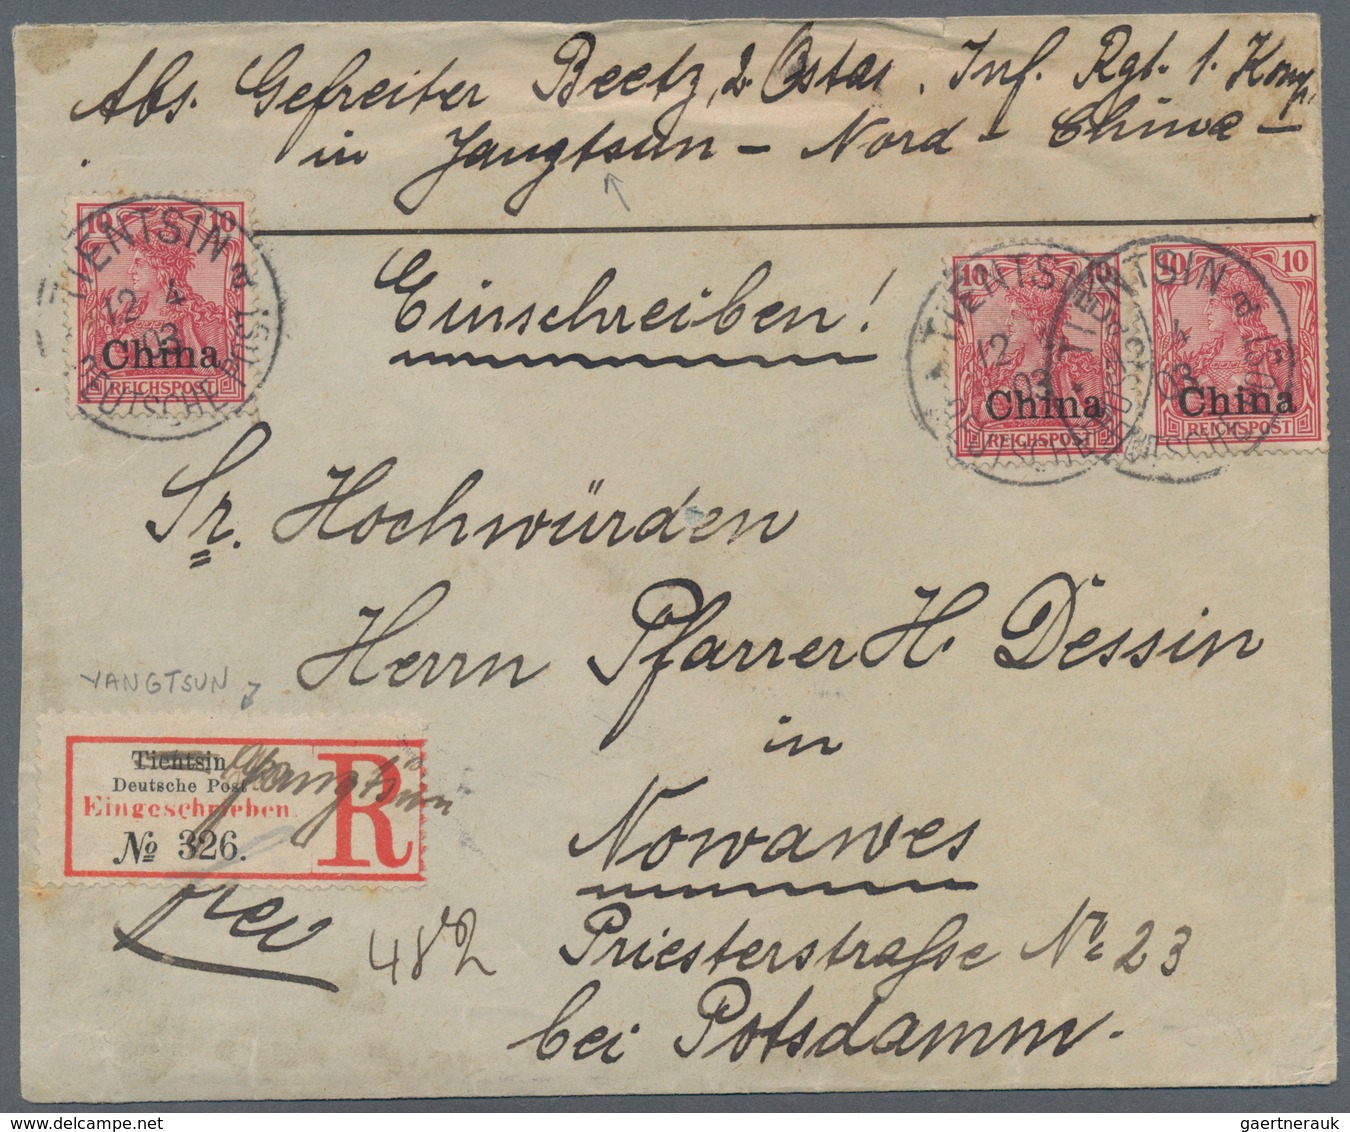 Abs. Gefreiter Beetz, 2. Ostas. Inf. Rgt. 1. Komp.
in Jangtsun - Nord - China -
10 10
China
REICHSPOST
TIENTSIN a
12 4
03
DEUTSCHE POST
Einschreiben!
10 10
China
REICHSPOST
TIENTSIN
12
03
DEUTSCHE
10 10
China
REICHSPOST
TIENTSIN a
4
03
DEUTSCHE POST
Sr. Hochwürden
Herrn Pfarrer H. Dessin
in
Nowawes
Priesterstraße No. 23
bei Potsdamm.
YANGTSUN
Tientsin Yangtsun
Deutsche Post
Eingeschrieben
R
No 326.
frei
gaertnerauk